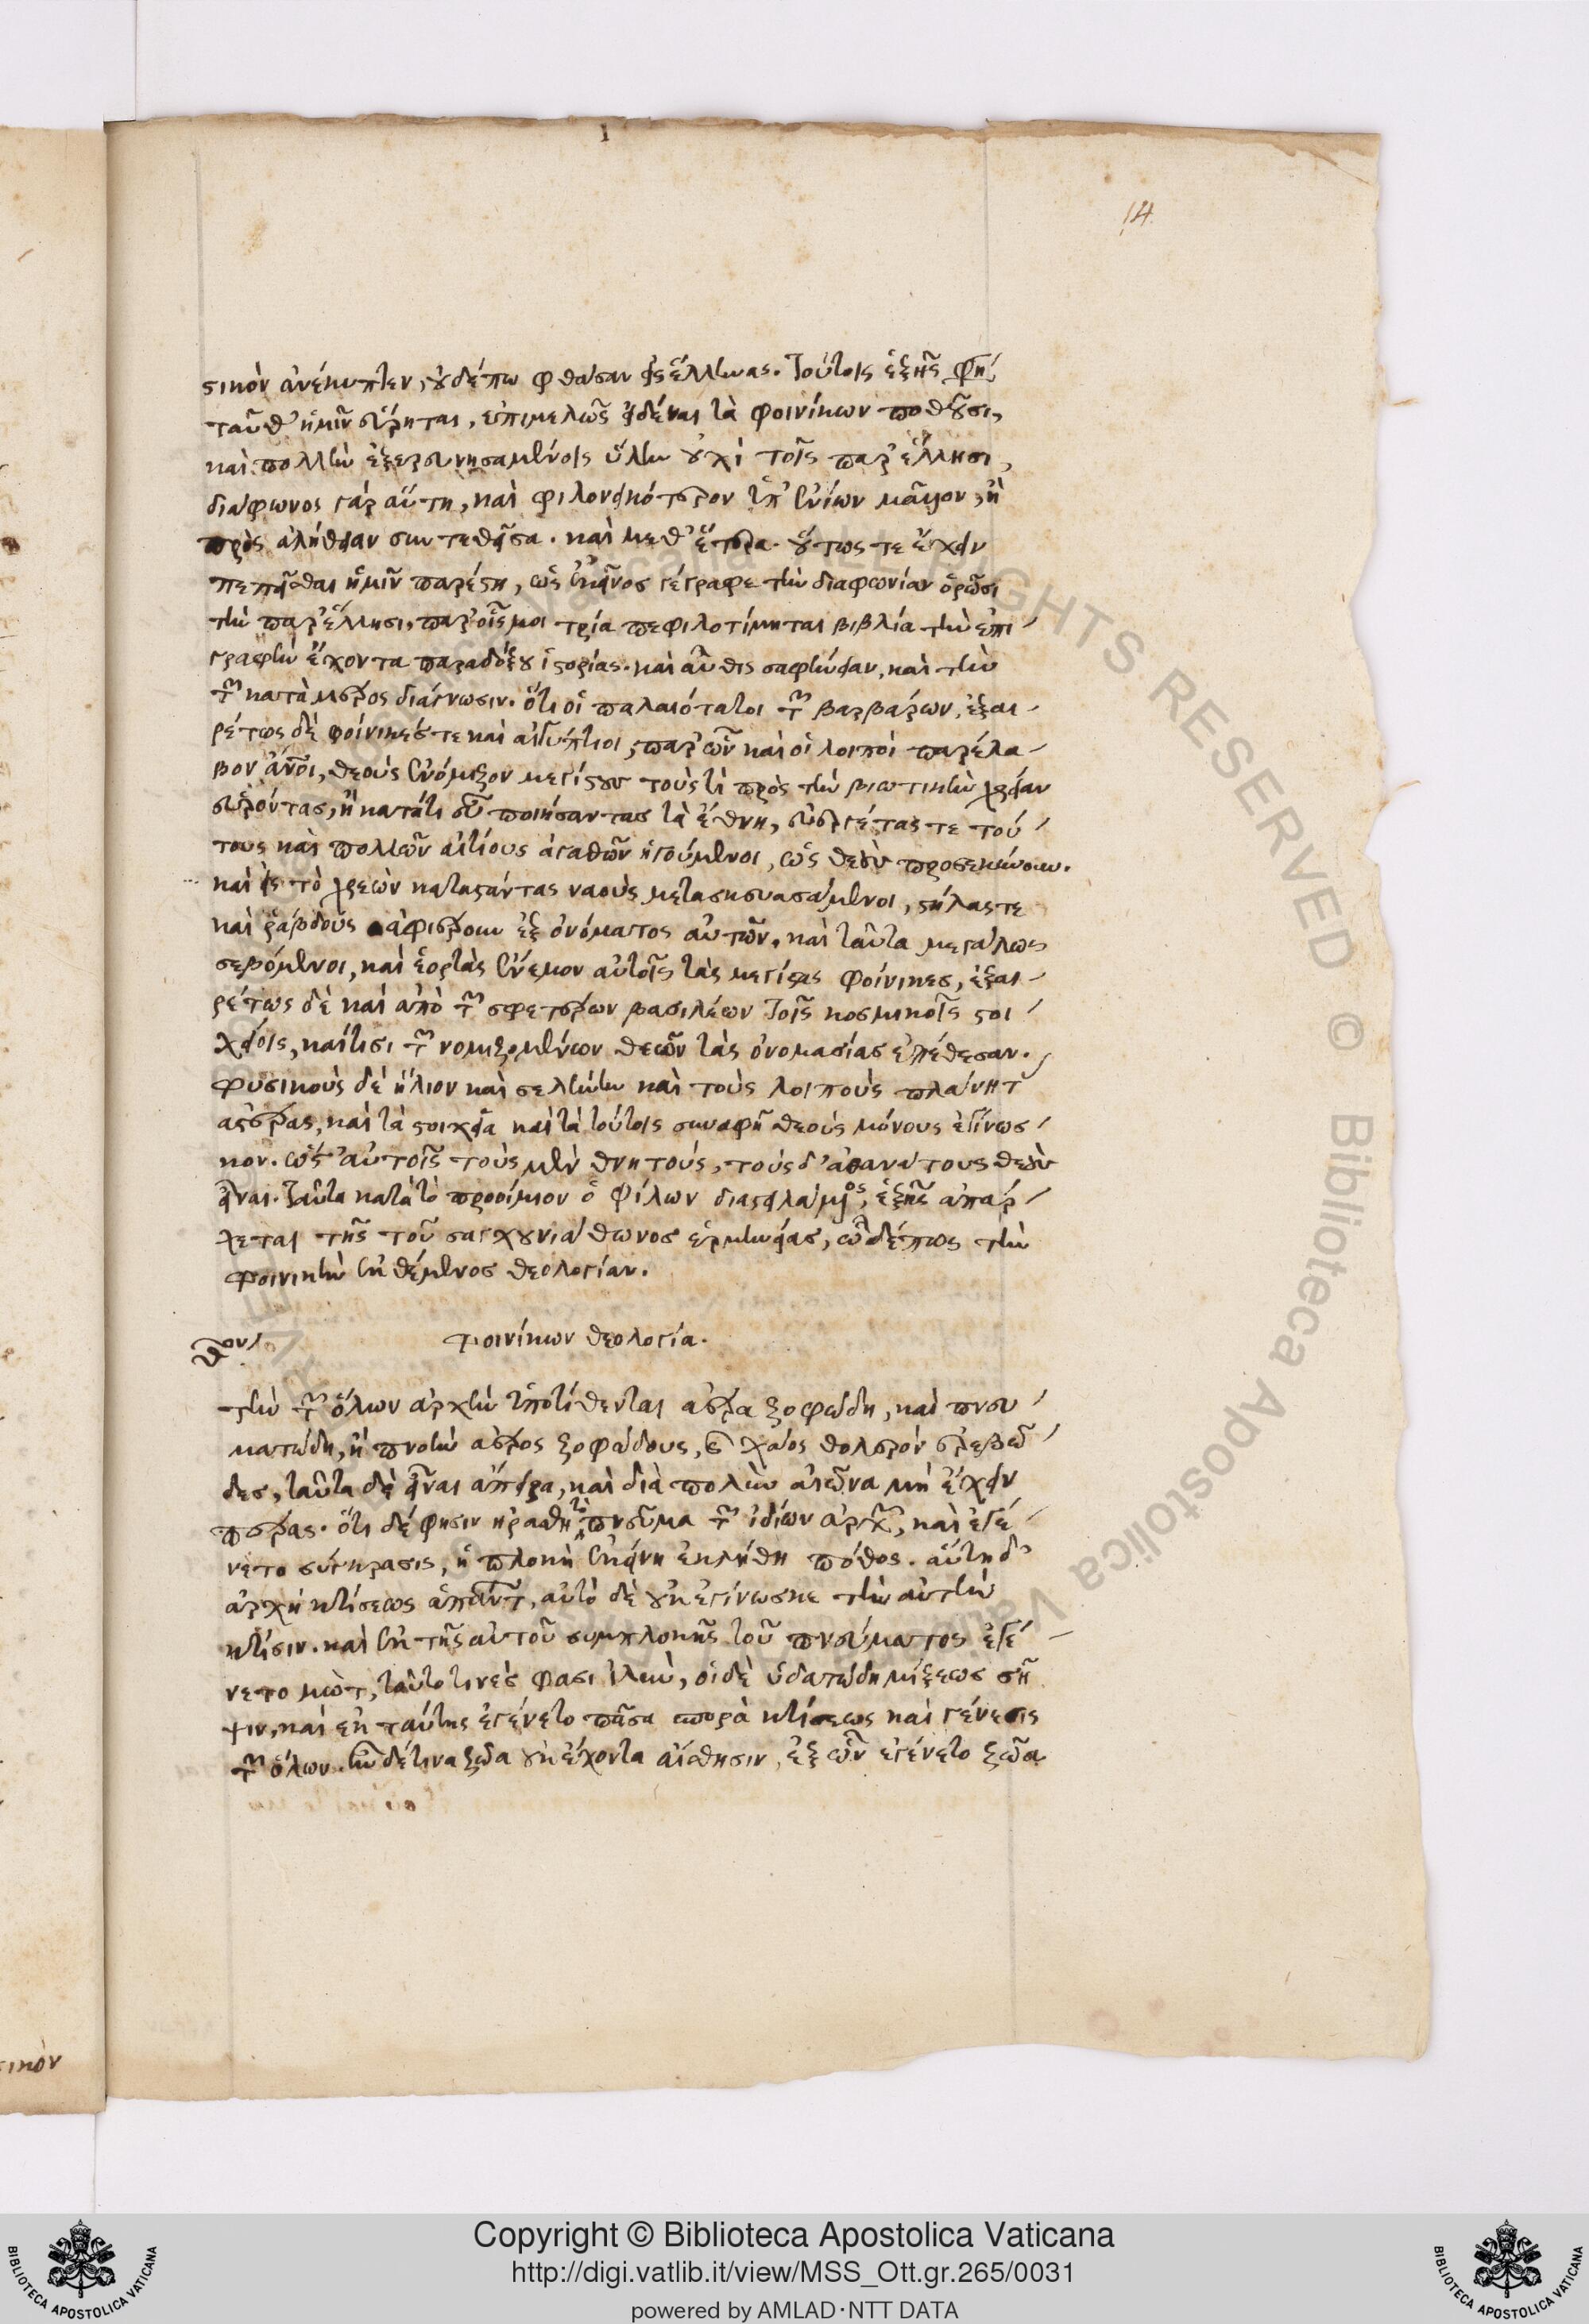 14
σικὸν ἀνέκυπτεν, οὐδέπω φθάσαν εἰς ἕλληνας. Τούτοις ἑξῆς φη
ταῦθ' ἡμῖν εὕρηται, ἐπιμελῶς εἰδέναι τὰ φοινίκων ποθοῦσι,
καὶ πολλὴν ἐξερευνησαμένοις ὕλην οὐχὶ τοῖς παρ' ἕλλησι,
διάφωνος γὰρ αὕτη, καὶ φιλονεικότερον ὑπ' ἐνίων μᾶλλον, ἢ
πρὸς ἀλήθειαν συντεθεῖσα. καὶ μεθ' ἕτερα. οὕτως τε ἔχειν
πεπεῖσθαι ἡμῖν παρέστη, ὡς ἐκεῖνος γέγραφε τὴν διαφωνίαν ὁρῶσι
τὴν παρ' ἕλλησι, παρ' οἷς μοι τρία πεφιλοτίμηται βιβλία τὴν ἐπι
γραφὴν ἔχοντα παραδόξου ἱστορίας. καὶ αὖθις σαφήνειαν, καὶ τὴν
τῶν κατὰ μέρος διάγνωσιν. ὅτι οἱ παλαιότατοι τῶν βαρβάρων, ἐξαι
ρέτως δὲ φοίνικές τε καὶ αἰγύπτιοι, παρ' ὧν καὶ οἱ λοιποὶ παρέλα
βον ἄνοι, θεοὺς ἐνόμιζον μεγίστους τοὺς τὰ πρὸς τὴν βιωτικὴν χρείαν
εὑρόντας, ἢ κατάτι εὖ ποιήσαντας τὰ ἔθνη, εὐεργέτας τε τού
τους καὶ πολλῶν αἰτίους ἀγαθῶν ἡγούμενοι, ὡς θεοὺς προσεκύνουν.
καὶ εἰς τὸ χρεὼν καταστάντας ναοὺς μετασκευασάμενοι, στήλας τε
καὶ ῥάβδους ἀφιέρουν ἐξ ὀνόματος αὐτῶν. καὶ ταῦτα μεγάλως
σεβόμενοι, καὶ ἑορτὰς ἔνεμον αὐτοῖς τὰς μεγίστας φοίνικες, ἐξαι
ρέτως δὲ καὶ ἀπὸ τῶν σφετέρων βασιλέων τοῖς κοσμικοῖς στοι
χείοις, καί τισι τῶν νομιζομένων θεῶν τὰς ὀνομασίας ἐπέθεσαν.
φυσικοὺς δὲ ἥλιον καὶ σελήνην καὶ τοὺς λοιποὺς πλάνητ
ἀστέρας, καὶ τὰ στοιχεῖα καὶ τὰ τούτοις συναφῆ θεοὺς μόνους ἐγίνωσ
κον. ὥστ' αὐτοῖς τοὺς μὲν θνητούς, τοὺς δ' ἀθανάτους θεοὺς
εἶναι. Ταῦτα κατὰ τὸ προοίμιον ὁ Φίλων διαστειλάμενος, ἑξῆς ἀπάρ
χεται τῆς τοῦ σαγχουνιάθωνος ἑρμηνείας, ὧδέ πως τὴν
φοινικὴν ἐκθέμενος θεολογίαν.
φοινίκων θεολογία.
τὴν τῶν ὅλων ἀρχὴν ὑποτίθενται ἀέρα ζοφώδη, καὶ πνευ
ματώδη, ἢ πνοὴν ἀέρος ζοφώδους, καὶ χάος θολερὸν ἐρεβῶ
δες, ταῦτα δὲ εἶναι ἄπειρα, καὶ διὰ πολὺν αἰῶνα μὴ ἔχειν
πέρας. ὅτι δέ φησιν ἠράσθη τὸ πνεῦμα τῶν ἰδίων ἀρχῶν, καὶ ἐγέ
νετο σύγκρασις, ἡ πλοκὴ ἐκείνη ἐκλήθη πόθος. αὕτη δ'
ἀρχὴ κτίσεως ἁπάντων, αὐτὸ δὲ οὐκ ἐγίνωσκε τὴν αὐτὴν
κτίσιν. καὶ ἐκ τῆς αὐτοῦ συμπλοκῆς τοῦ πνεύματος ἐγέ
νετο μώτ, ταῦτο τινές φασι ἰλὺν, οἱ δὲ ὑδατώδη μίξεως σῆ
ψιν, καὶ ἐκ ταύτης ἐγένετο πᾶσα σπορὰ κτίσεως καὶ γένεσις
τῶν ὅλων. ἦν δέ τινα ζῶα οὐκ ἔχοντα αἴσθησιν, ἐξ ὧν ἐγένετο ζῶα
σικὸν
Copyright © Biblioteca Apostolica Vaticana
http://digi.vatlib.it/view/MSS_Ott.gr.265/0031
powered by AMLAD·NTT DATA
BIBLIOTECA APOSTOLICA VATICANA
BIBLIOTECA APOSTOLICA VATICANA